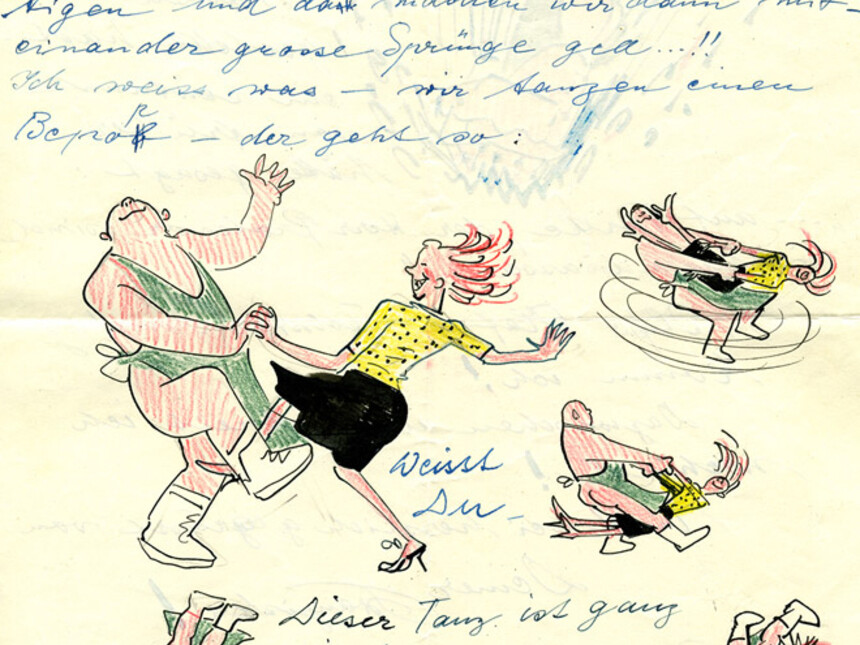 tigen und machen wir dann mit-
einander grosse Sprünge gell...!!
Ich weiss was — wir tanzen einen
— der geht so:
Weisst
Du —
Dieser Tanz ist ganz